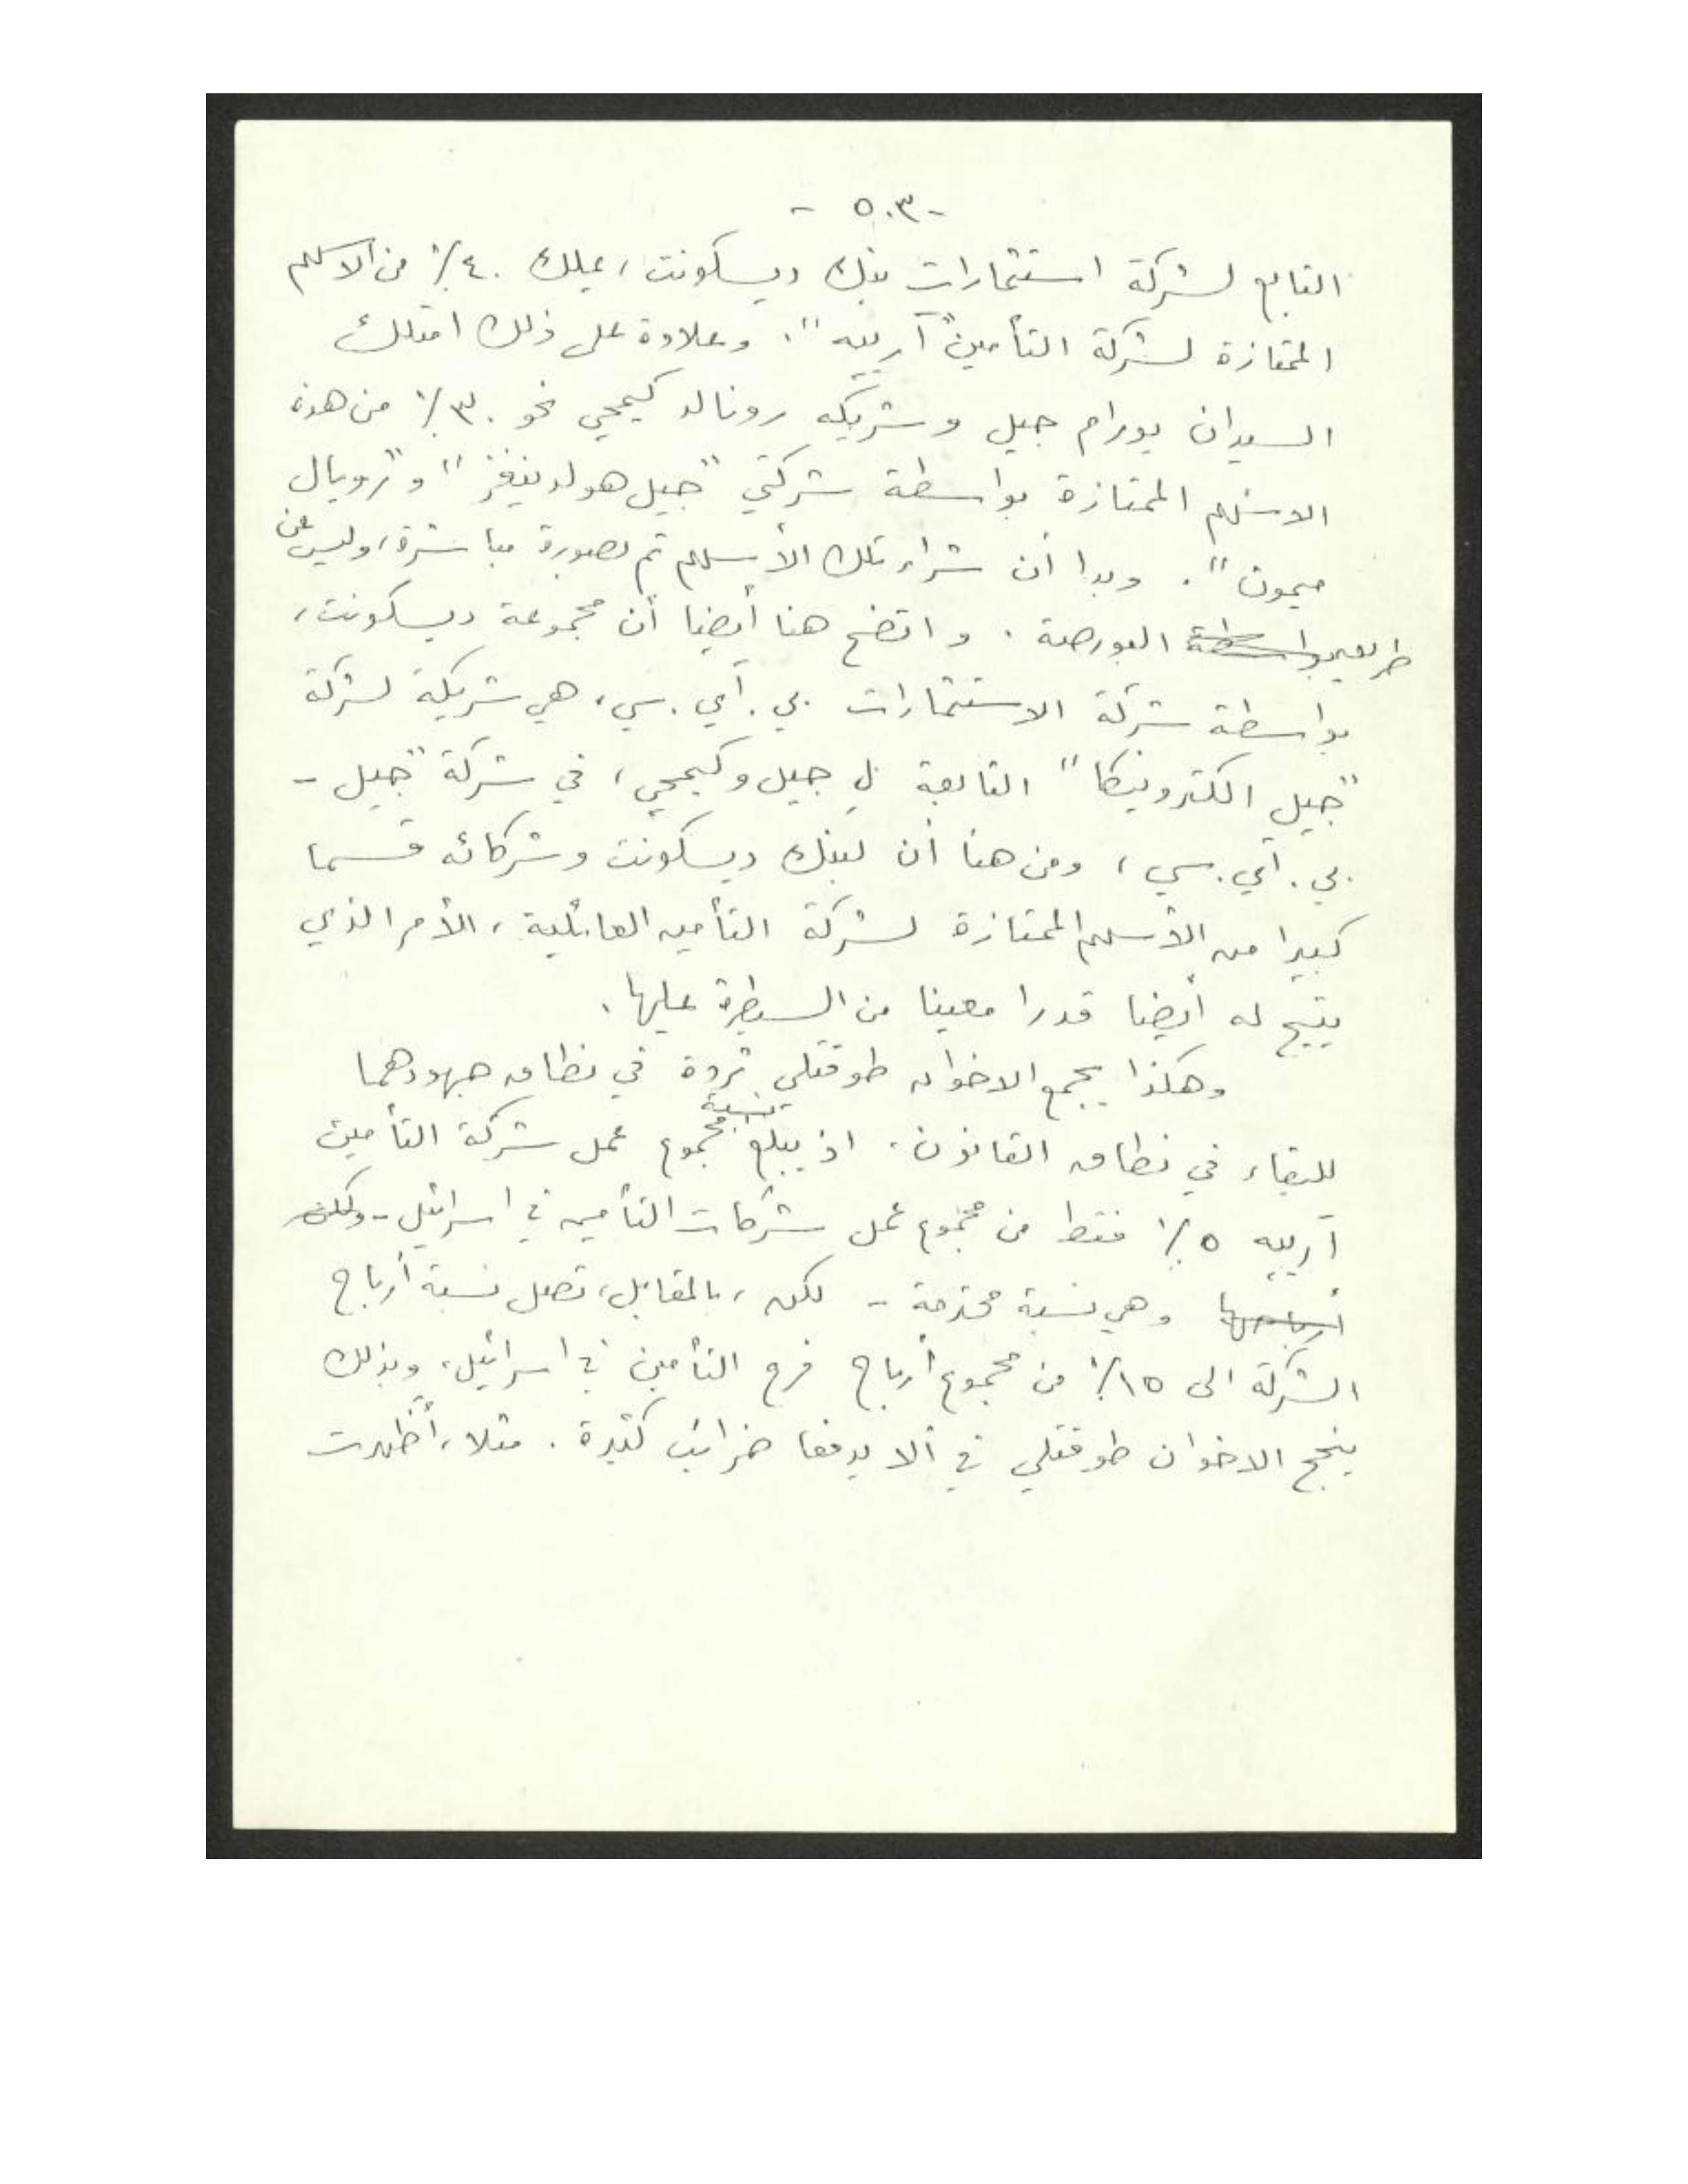 - ٥٠٣ -
التابع لشركة استثمارات بنك ديسكونت، يملك ٤٠٪ من الاسهم
الممتازة لشركة التأمين "آرييه". وعلاوة على ذلك امتلك
السيدان يورام جيل وشريكه رونالد كيمحي نحو ٣٠٪ من هذه
الاسهم الممتازة بواسطة شركتي "جيل هولدينغز" و"رويال
ميمون". وبدا أن شراء تلك الأسهم تم بصورة مباشرة، وليس عن
طريق بواسطة البورصة. واتضح هنا أيضا أن مجموعة ديسكونت،
بواسطة شركة الاستثمارات بي. آي. سي، هي شريكة لشركة
"جيل الكترونيكا" التابعة لـ جيل وكيمحي، في شركة "جيل -
بي. آي. سي، ومن هنا أن لبنك ديسكونت وشركائه قسما
كبيرا من الأسهم الممتازة لشركة التأمين العائلية، الأمر الذي
يتيح له أيضا قدرا معينا من السيطرة عليها.
وهكذا يجمع الاخوان طوقتلي ثروة في نطاق جهودهما
للبقاء في نطاق القانون. اذ يبلغ نسبة مجموع عمل شركة التأمين
آرييه ٥٪ فقط من مجموع عمل شركات التأمين في اسرائيل - ولكن
أرباحها وهي نسبة محترمة - لكن، بالمقابل، تصل نسبة أرباح
الشركة الى ١٥٪ من مجموع أرباح فرع التأمين في اسرائيل، وبذلك
ينجح الاخوان طوقتلي في ألا يدفعا ضرائب كثيرة. مثلا، أظهرت